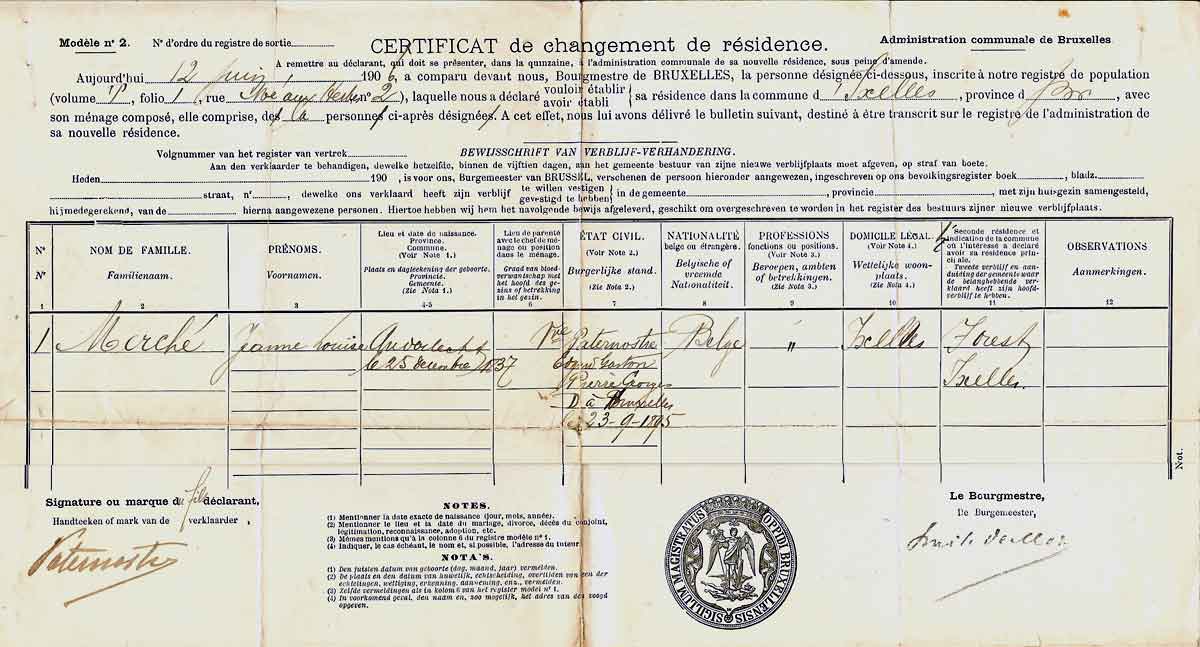 Modèle n° 2.
N° d'ordre du registre de sortie
CERTIFICAT de changement de résidence.
Administration communale de Bruxelles
A remettre au déclarant, qui doit se présenter, dans la quinzaine, à l'administration communale de sa nouvelle résidence, sous peine d'amende.
Aujourd'hui 12 juin 1906, a comparu devant nous, Bourgmestre de BRUXELLES, la personne désignée ci-dessous, inscrite à notre registre de population
(volume , folio 1, rue n° 2), laquelle nous a déclaré vouloir établir avoir établi sa résidence dans la commune d'Ixelles, province d , avec
son ménage composé, elle comprise, de la personne ci-après désignée. A cet effet, nous lui avons délivré le bulletin suivant, destiné à être transcrit sur le registre de l'administration de
sa nouvelle résidence.
Volgnummer van het register van vertrek
BEWIJSSCHRIFT VAN VERBLIJF-VERHANDERING.
Aan den verklaarder te behandigen, dewelke hetzelfde, binnen de vijftien dagen, aan het gemeente bestuur van zijne nieuwe verblijfplaats moet afgeven, op straf van boete.
Heden 190 , is voor ons, Burgemeester van BRUSSEL, verschenen de persoon hieronder aangewezen, ingeschreven op ons bevolkingsregister boek , bladz.
straat, n° , dewelke ons verklaard heeft zijn verblijf te willen vestigen gevestigd te hebben in de gemeente , provincie , met zijn huisgezin samengesteld,
hij medegerekend, van de hierna aangewezene personen. Hiertoe hebben wij hem het navolgende bewijs afgeleverd, geschikt om overgeschreven te worden in het register des bestuurs zijner nieuwe verblijfplaats.
N°
N°
1
NOM DE FAMILLE.
Familienaam.
2
PRÉNOMS.
Voornamen.
3
Lieu et date de naissance.
Province.
Commune.
(Voir Note 1.)
Plaats en dagteekening der geboorte.
Provincie.
Gemeente.
(Zie Nota 1.)
4-5
Lieu de parenté
avec le chef de ménage ou position
dans le ménage.
Graad van bloedverwantschap met
het hoofd des gezins of betrekking
in het gezin.
6
ÉTAT CIVIL.
(Voir Note 2.)
Burgerlijke stand.
(Zie Nota 2.)
7
NATIONALITÉ
belge ou étrangère.
Belgische of
vreemde
Nationaliteit.
8
PROFESSIONS
fonctions ou positions.
(Voir Note 3.)
Beroepen, ambten
of betrekkingen.
(Zie Nota 3.)
9
DOMICILE LÉGAL.
(Voir Note 4.)
Wettelijke woonplaats.
(Zie Nota 4.)
10
Seconde résidence et
indication de la commune
où l'intéressé a déclaré
avoir sa résidence principale.
Tweede verblijf en aanduiding der gemeente waar
de belanghebbende verklaard heeft zijn hoofdverblijf te hebben.
11
OBSERVATIONS
Aanmerkingen.
12
1 Merché Jeanne Louise Anderlecht Vve Paternostre Belge " Ixelles Forest
le 25 décembre 1837 Gaston Ixelles.
Pierre Georges
D à Bruxelles
le 23-9-1895
Not.
Signature ou marque du fils déclarant,
Handteeken of mark van de verklaarder ,
Paternostre
NOTES.
(1) Mentionner la date exacte de naissance (jour, mois, année).
(2) Mentionner le lieu et la date du mariage, divorce, décès du conjoint,
légitimation, reconnaissance, adoption, etc.
(3) Mêmes mentions qu'à la colonne 6 du registre modèle n° 1.
(4) Indiquer, le cas échéant, le nom et, si possible, l'adresse du tuteur.
NOTA'S.
(1) Den juisten datum van geboorte (dag, maand, jaar) vermelden.
(2) De plaats en den datum van huwelijk, echtscheiding, overlijden van een der
echtelingen, wettiging, erkenning, aanneming, enz., vermelden.
(3) Zelfde vermeldingen als in kolom 6 van het register model n° 1.
(4) In voorkomend geval, den naam en, zoo mogelijk, het adres van den voogd
opgeven.
SIGILLUM MAGISTRATUS OPPIDI BRUXELLENSIS
Le Bourgmestre,
De Burgemeester,